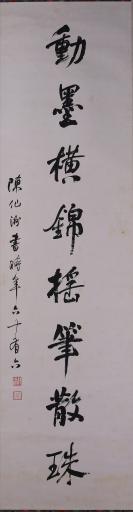 動墨橫錦搖筆散珠
陳仙洲書時年六十有六